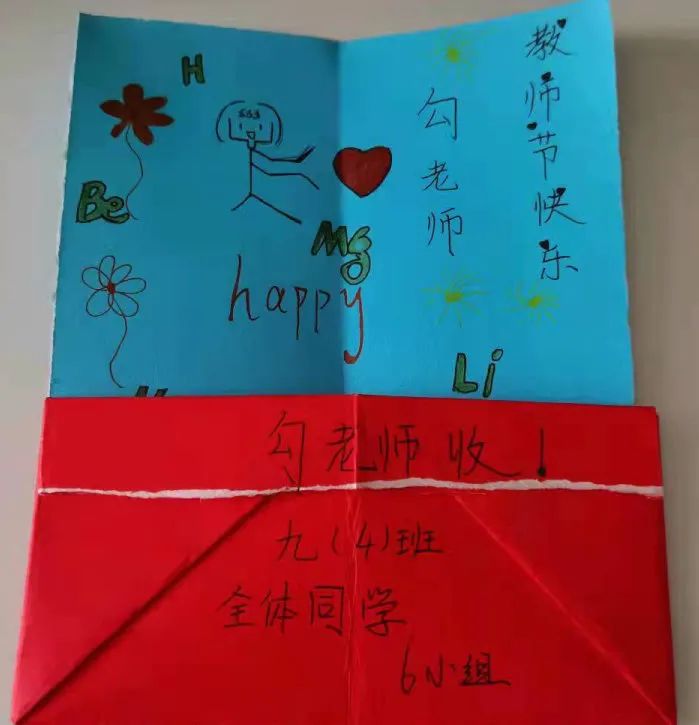 教师节快乐
勾老师
H
Be
Mg
happy
Li
勾老师收！
九(4)班
全体同学
6小组